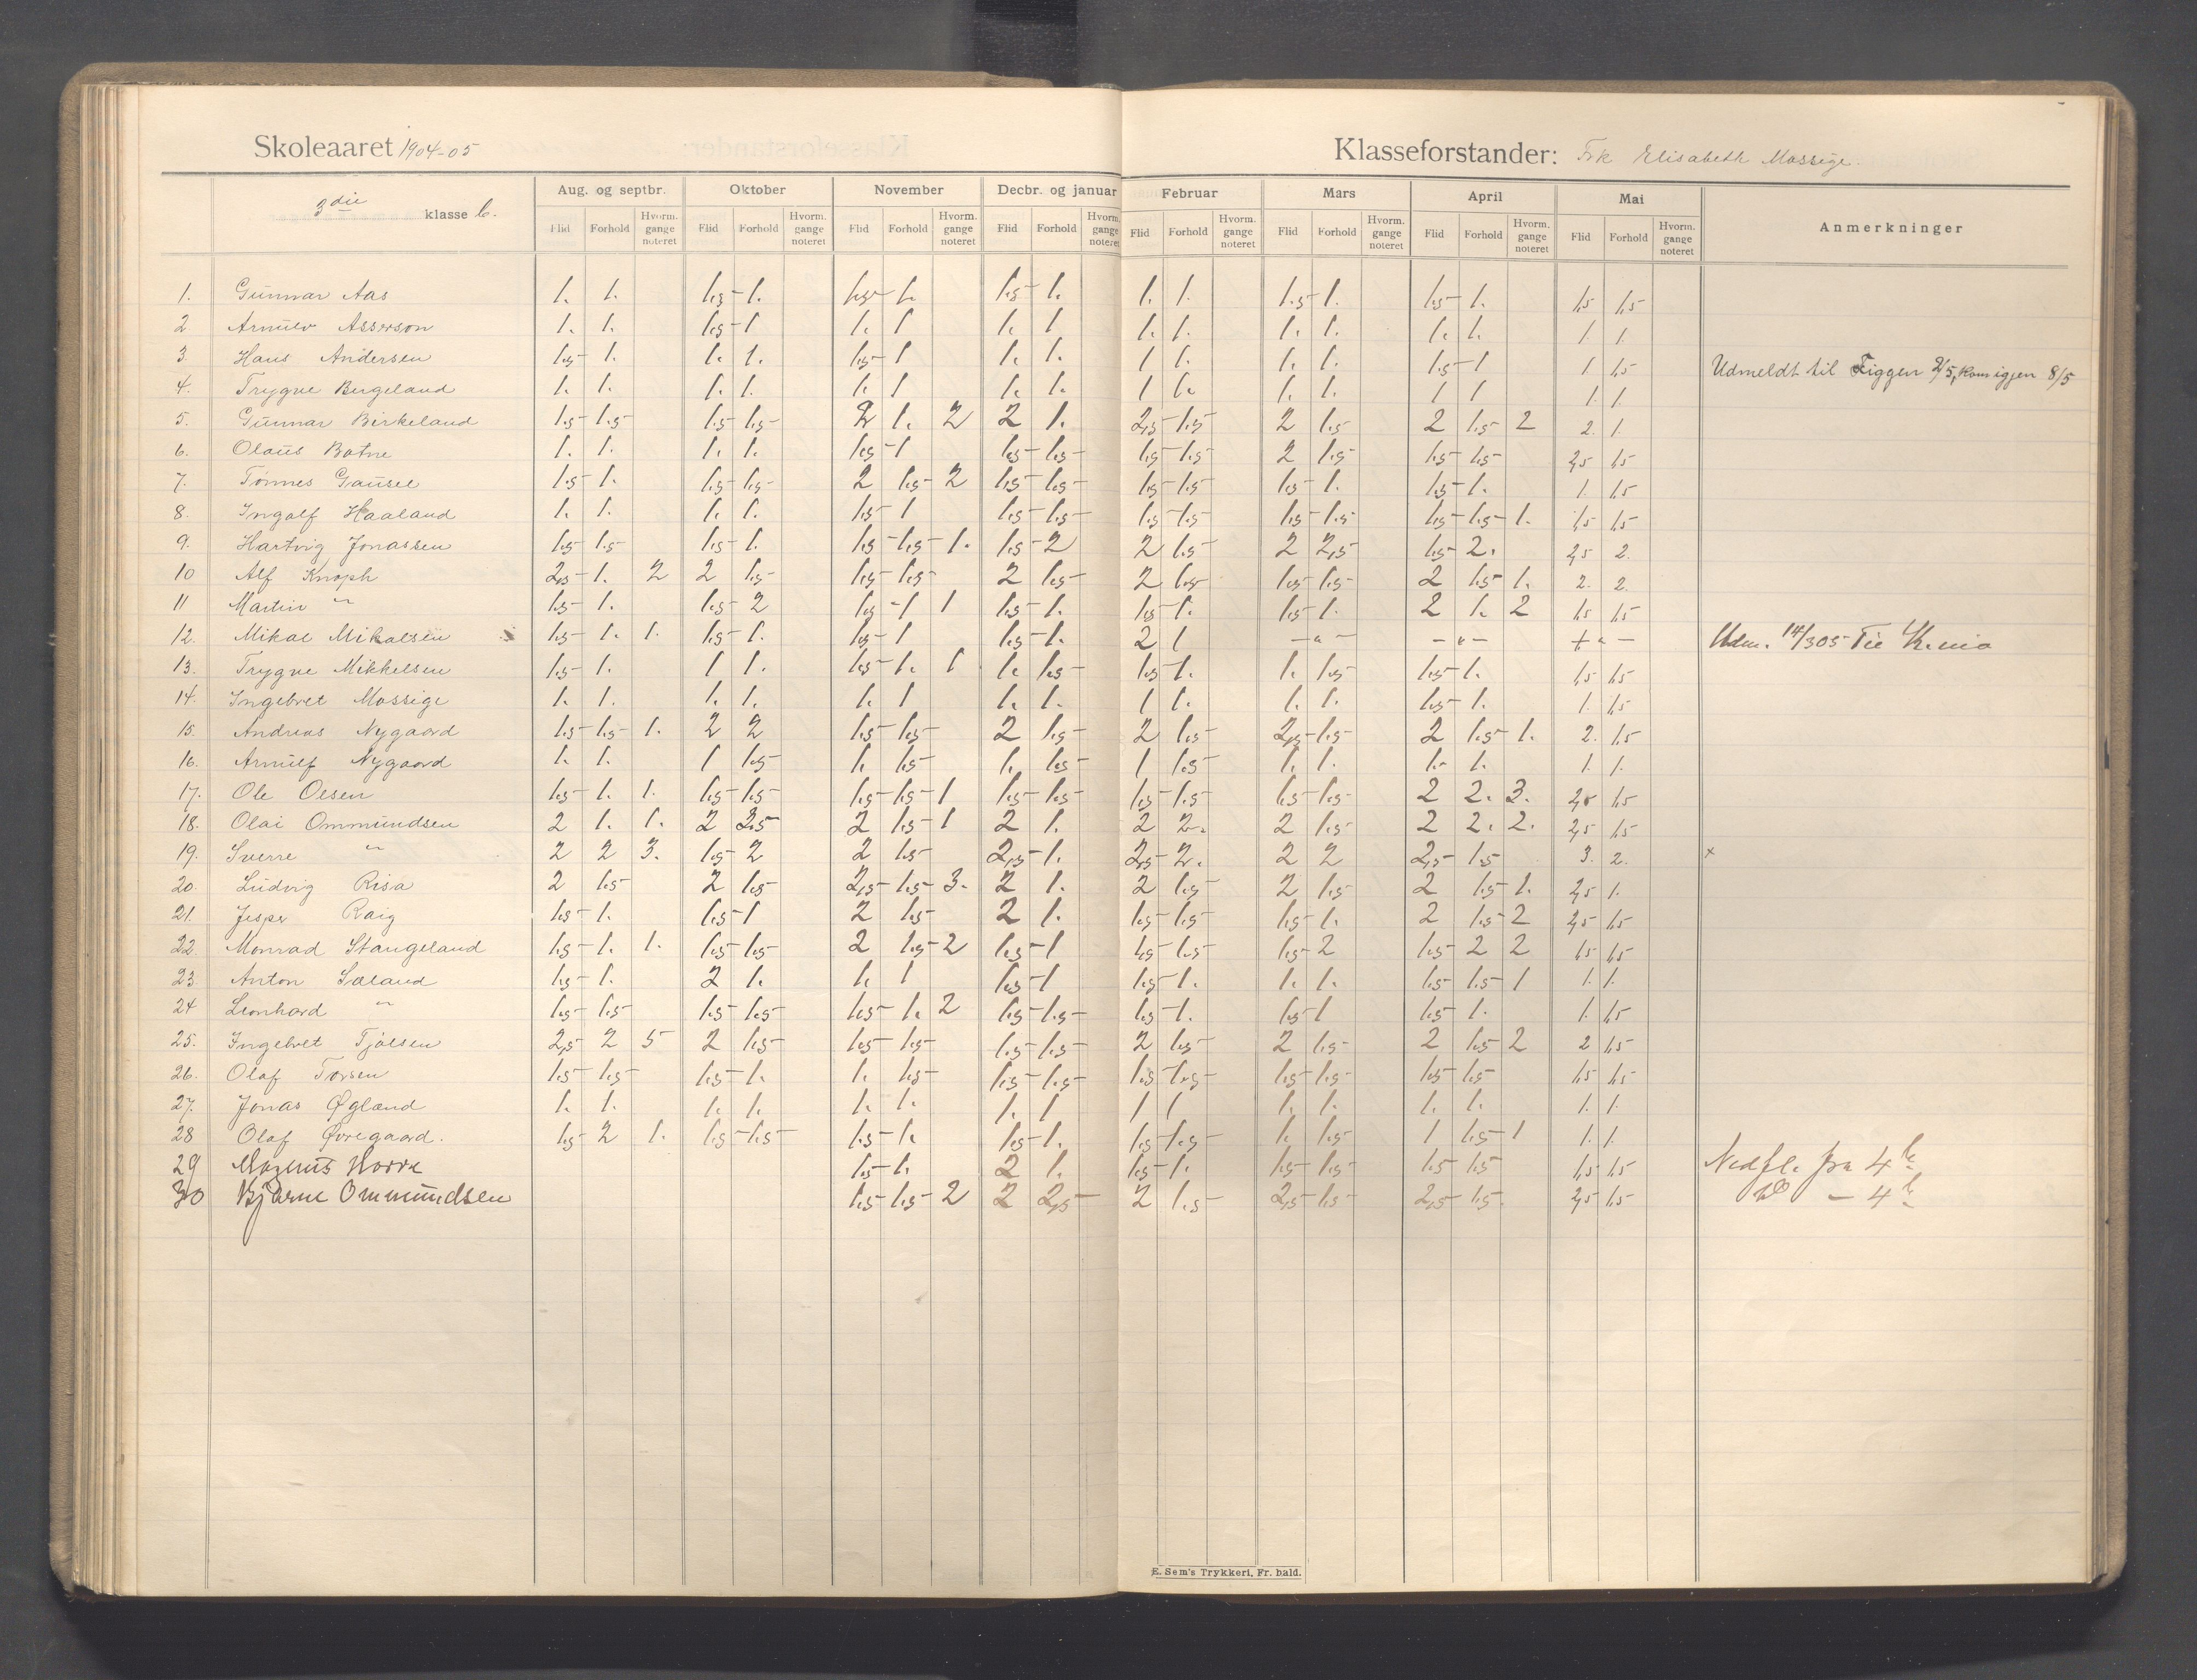 Skoleaaret 1904-05 Klasseforstander: Frk Elisabeth Mossige.
3die klasse b. Aug. og septbr. Oktober November Decbr. og januar Februar Mars April Mai Anmerkninger
Flid Forhold Hvorm. gange noteret Flid Forhold Hvorm. gange noteret Flid Forhold Hvorm. gange noteret Flid Forhold Hvorm. gange noteret Flid Forhold Hvorm. gange noteret Flid Forhold Hvorm. gange noteret Flid Forhold Hvorm. gange noteret Flid Forhold Hvorm. gange noteret
1. Gunnar Aas 1. 1. 1.5 1. 1.5 1. 1.5 1. 1. 1. 1.5 1. 1.5 1. 1,5 1,5
2 Arnulv Asserson 1. 1. 1.5 1 1. 1 1. 1 1. 1. 1. 1. 1. 1. 1. 1.
3. Hans Andersen 1.5 1. 1. 1. 1.5 1 1. 1. 1 1. 1. 1. 1.5 1 1 1,5 Udmeldt til Tiggen 2/5, kom igjen 8/5
4. Trygve Bergeland 1. 1. 1. 1. 1. 1 1. 1. 1 1. 1. 1. 1 1 1. 1.
5. Gunnar Birkeland 1.5 1.5 1.5 1.5 2 1. 2 2 1. 2,5 1.5 2 1.5 2 1.5 2 2. 1.
6. Olaus Botne 1. 1. 1. 1. 1.5 1 1.5 1.5 1.5 1.5 2 1.5 1.5 1.5 2,5 1,5
7. Tønnes Gausel 1.5 1. 1.5 1.5 2 1.5 2 1.5 1.5 1.5 1.5 1.5 1. 1.5 1. 1. 1,5
8. Ingolf Haaland 1. 1. 1. 1. 1.5 1 1.5 1.5 1.5 1.5 1.5 1.5 1.5 1.5 1. 1,5 1,5
9. Hartvig Jonassen 1.5 1.5 1.5 1. 1.5 1.5 1. 1.5 2 2 1.5 2 2,5 1.5 2. 2,5 2.
10 Alf Knoph 2,5 1. 2 2 1.5 1.5 1.5 2 1.5 2 1.5 1.5 1.5 2 1.5 1. 2. 2.
11 Martin " 1.5 1. 1.5 2 1.5 1 1 1.5 1. 1.5 1. 1.5 1. 2 1. 2 1,5 1,5
12. Mikal Mikalsen 1.5 1. 1. 1.5 1. 1.5 1 1.5 1. 2 1 - " - - " - + " - Udm. 14/3 05
13. Trygve Mikkelsen 1.5 1. 1 1. 1.5 1. 1 1. 1.5 1.5 1. 1. 1.5 1.5 1. 1,5 1,5
14. Ingebret Mossige 1. 1. 1. 1. 1. 1 1. 1. 1 1. 1. 1. 1.5 1. 1. 1,5
15. Andreas Nygaard 1.5 1.5 1. 2 2 1.5 1.5 2 1.5 2 1.5 2,5 1.5 2 1.5 1. 2. 1.5
16. Arnulf Nygaard 1. 1. 1 1.5 1. 1.5 1. 1.5 1 1.5 1. 1. 1. 1. 1. 1.
17. Ole Olsen 1.5 1. 1. 1.5 1.5 1.5 1.5 1 1.5 1.5 1.5 1.5 1.5 1.5 2 2. 3. 2,5 1,5
18. Olai Ommundsen 2 1. 1. 2 2.5 2 1.5 1 2 1. 2 2. 2 1.5 2 2. 2. 2,5 1,5
19. Sverre " 2 2 3. 1.5 2 2 1.5 2,5 1. 2,5 2. 2 2 2,5 1.5 3. 2. x
20. Ludvig Risa 2 1.5 2 1.5 2,5 1.5 3. 2 1. 2 1.5 2 1.5 2 1.5 1. 2,5 1.
21. Jesper Roig 1.5 1. 1.5 1 2 1.5 2 1. 1.5 1.5 1.5 1. 2 1.5 2 2,5 1,5
22. Monrad Stangeland 1.5 1. 1. 1.5 1.5 2 1.5 2 1.5 1 1.5 1.5 1.5 2 1.5 2 2 1,5 1,5
23. Anton Sæland 1.5 1. 2 1. 1. 1 1.5 1 1.5 1. 1. 1. 1.5 1.5 1 1. 1.
24 Leonhard " 1.5 1.5 1.5 1.5 1.5 1. 2 1.5 1.5 1.5 1. 1.5 1 1.5 1. 1. 1,5
25. Ingebret Tjølsen 2,5 2 5 2 1.5 1.5 1.5 1.5 1.5 2 1.5 2 1.5 2 1.5 2 2 1,5
26. Olaf Torsen 1.5 1.5 1.5 1. 1. 1.5 1.5 1.5 1.5 1.5 1.5 1.5 1.5 1.5 1,5 1,5
27. Jonas Øglænd 1. 1. 1. 1. 1. 1. 1. 1 1 1 1. 1. 1. 1. 1. 1.
28 Olaf Øvregaard. 1.5 2 1. 1.5 1.5 1.5 1. 1.5 1. 1.5 1.5 1. 1.5 1 1.5 1 1. 1.
29 Magnus Horve 1.5 1. 2 1. 1.5 1. 1.5 1.5 1.5 1.5 1,5 1,5 Nedfl. fra 4 b
30 Bjarne Ommundsen 1.5 1.5 2 2 2,5 2 1.5 2,5 1.5 2,5 1.5. 2,5 1,5 Do - 4 b
E. Sem's Trykkeri, Fr. hald.